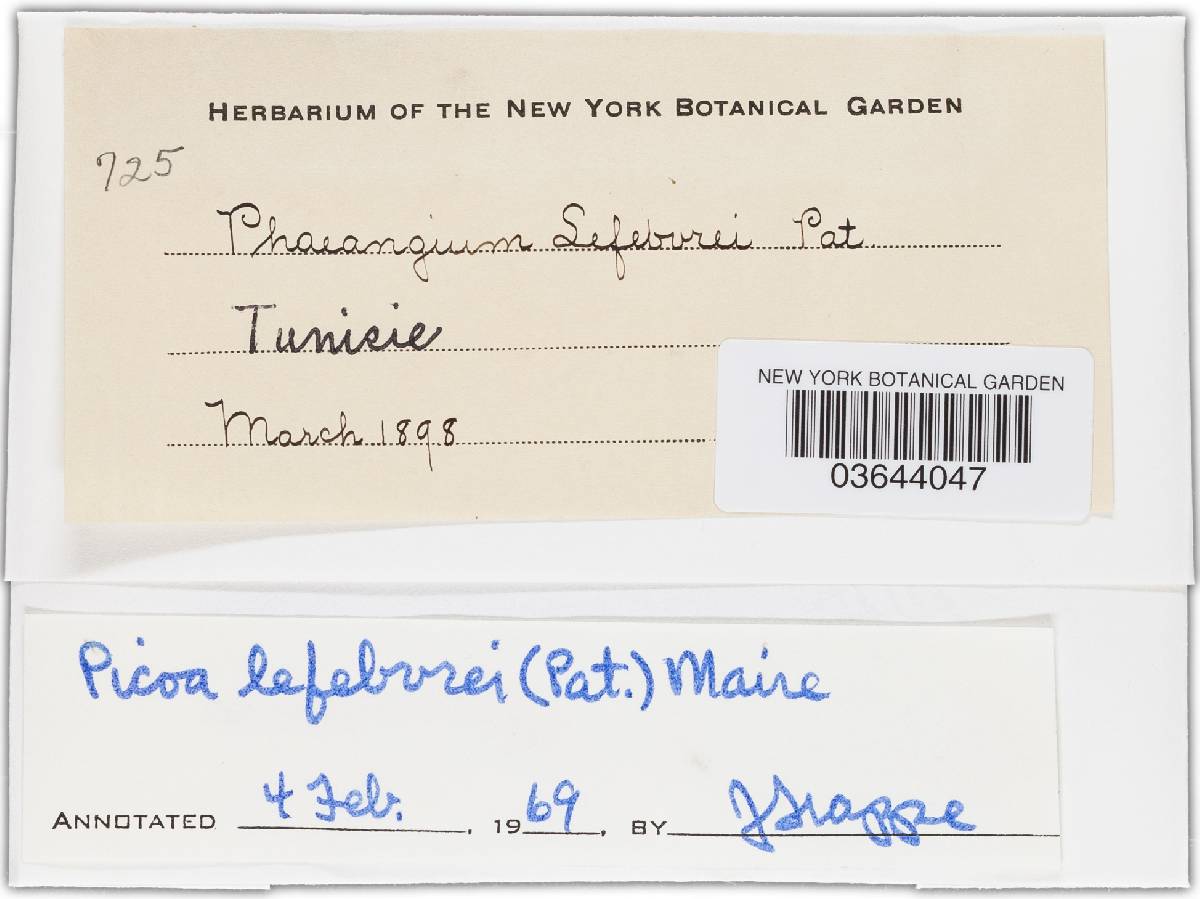 HERBARIUM OF THE NEW YORK BOTANICAL GARDEN
725
Phaeangium Lefebvrei Pat
Tunisie
March 1898
NEW YORK BOTANICAL GARDEN
03644047
Picoa lefebvrei (Pat.) Maire
ANNOTATED 4 Feb. , 1969 , BY JTrappe